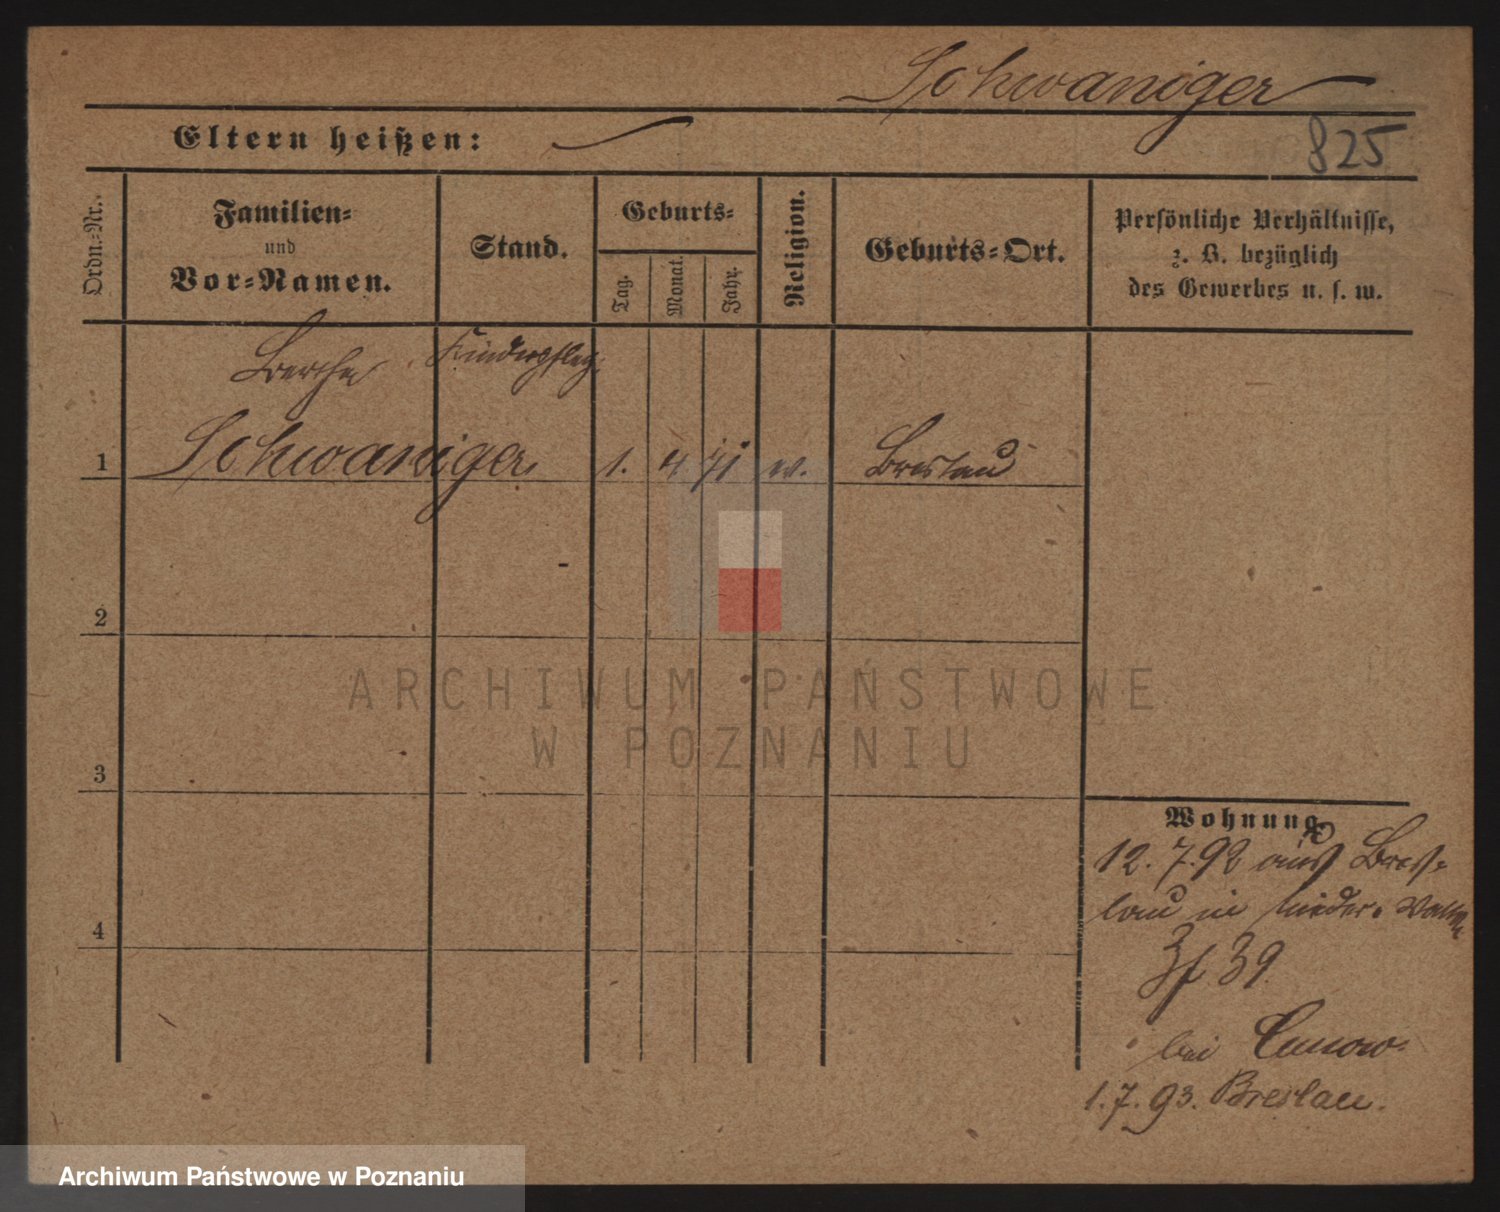 Schwaniger
Eltern heißen:
825
Ordn.-Nr.
Familien-
und
Vor-Namen.
Stand.
Geburts-
Tag.
Monat.
Jahr.
Religion.
Geburts-Ort.
Persönliche Verhältnisse,
z. B. bezüglich
des Gewerbes u. s. w.
Bertha Kinderpfleg.
1 Schwaniger 1. 4. 71 w. Breslau
2
3
4
Wohnung
12. 7. 92 aus Bres-
lau in
39.
bei
1. 7. 93. Breslau.
ARCHIWUM PAŃSTWOWE
W POZNANIU
Archiwum Państwowe w Poznaniu